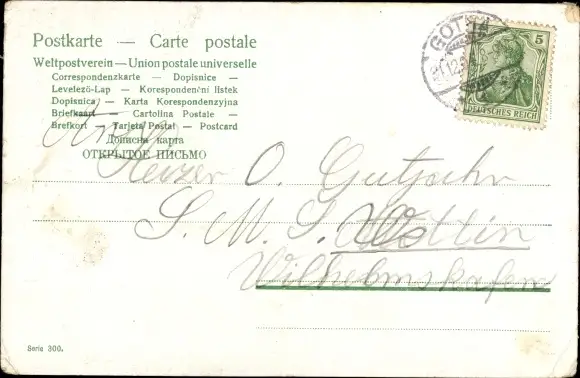 Postkarte — Carte postale
Weltpostverein — Union postale universelle
Correspondenzkarte — Dopisnice —
Levelező-Lap — Korespondenční lístek
Dopisnica — Karta Korespondenzyjna
Briefkaart — Cartolina Postale —
Brefkort — Tarjeta Postal — Postcard
Дописна карта
ОТКРЫТОЕ ПИСЬМО
GOTHA
5
DEUTSCHES REICH
Heizer O. Gutjahr
S. M. S. Wettin
Wilhelmshafen
Serie 300.